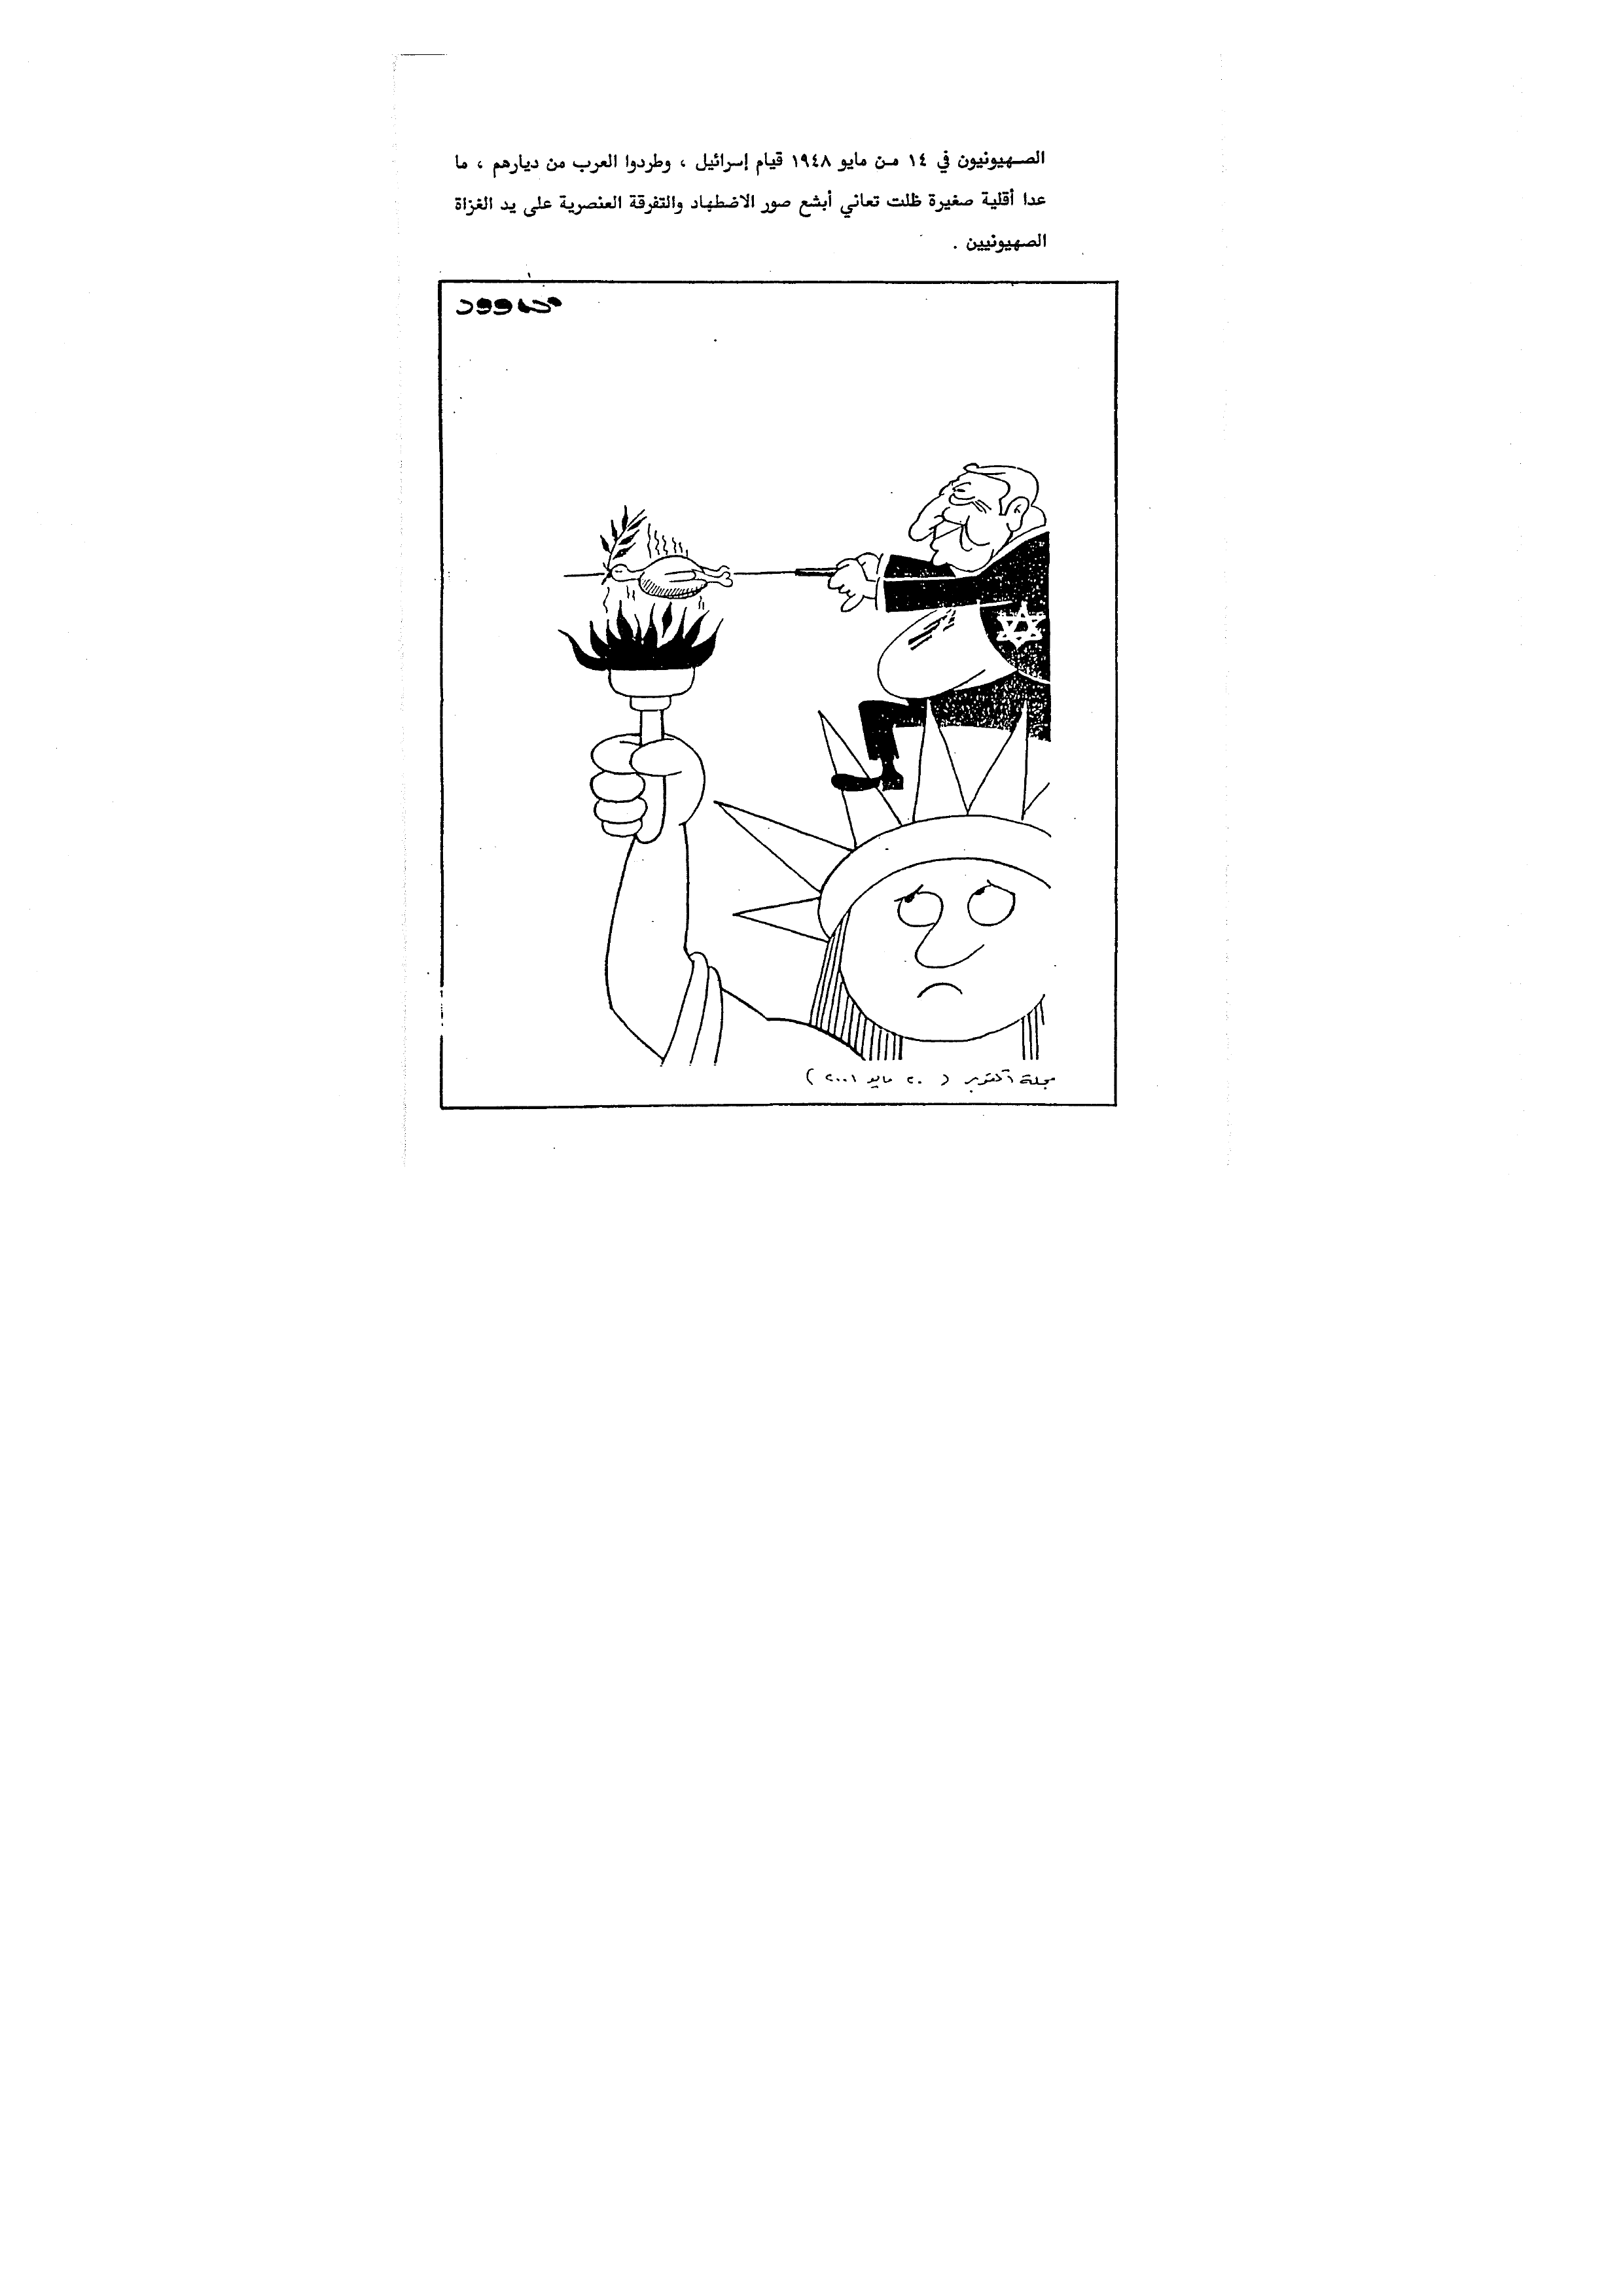 الصهيونيون في ١٤ من مايو ١٩٤٨ قيام إسرائيل ، وطردوا العرب من ديارهم ، ما
عدا أقلية صغيرة ظلت تعاني أبشع صور الاضطهاد والتفرقة العنصرية على يد الغزاة
الصهيونيين .
مجلة أكتوبر ( ٢٠ مايو ٢٠٠١ )